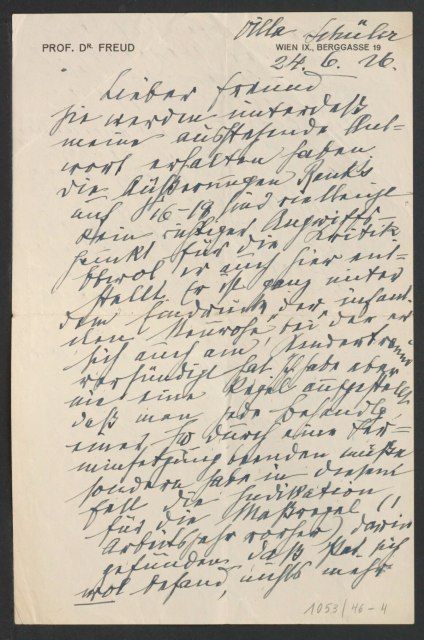 PROF. DR. FREUD
Villa Schüler
WIEN IX., BERGGASSE 19
24. 6. 26.
Lieber Freund
Sie werden unterdeß
meine ausstehende Ant=
wort erhalten haben.
Die Äußerungen Rank's
auf S 16–19 sind vielleicht
kein richtiger Angriffs-
punkt für die Kritik
obwol er auch hier ent=
stellt. Er ist ganz unter
dem Eindruck der infanti-
len Neurose bei der er
sich auch am Kindertraum
versündigt hat. Ich habe aber
nie eine Regel aufgestellt
daß man jede Behandlg
einer so durch eine Ter=
minsetzung beenden müße
sondern habe in diesem
Fall die Indikation
für die Maßregel (1
Arbeitsjahr vorher) darin
gefunden, daß Pat. sich
wol befand, nichts mehr
1053/46-4